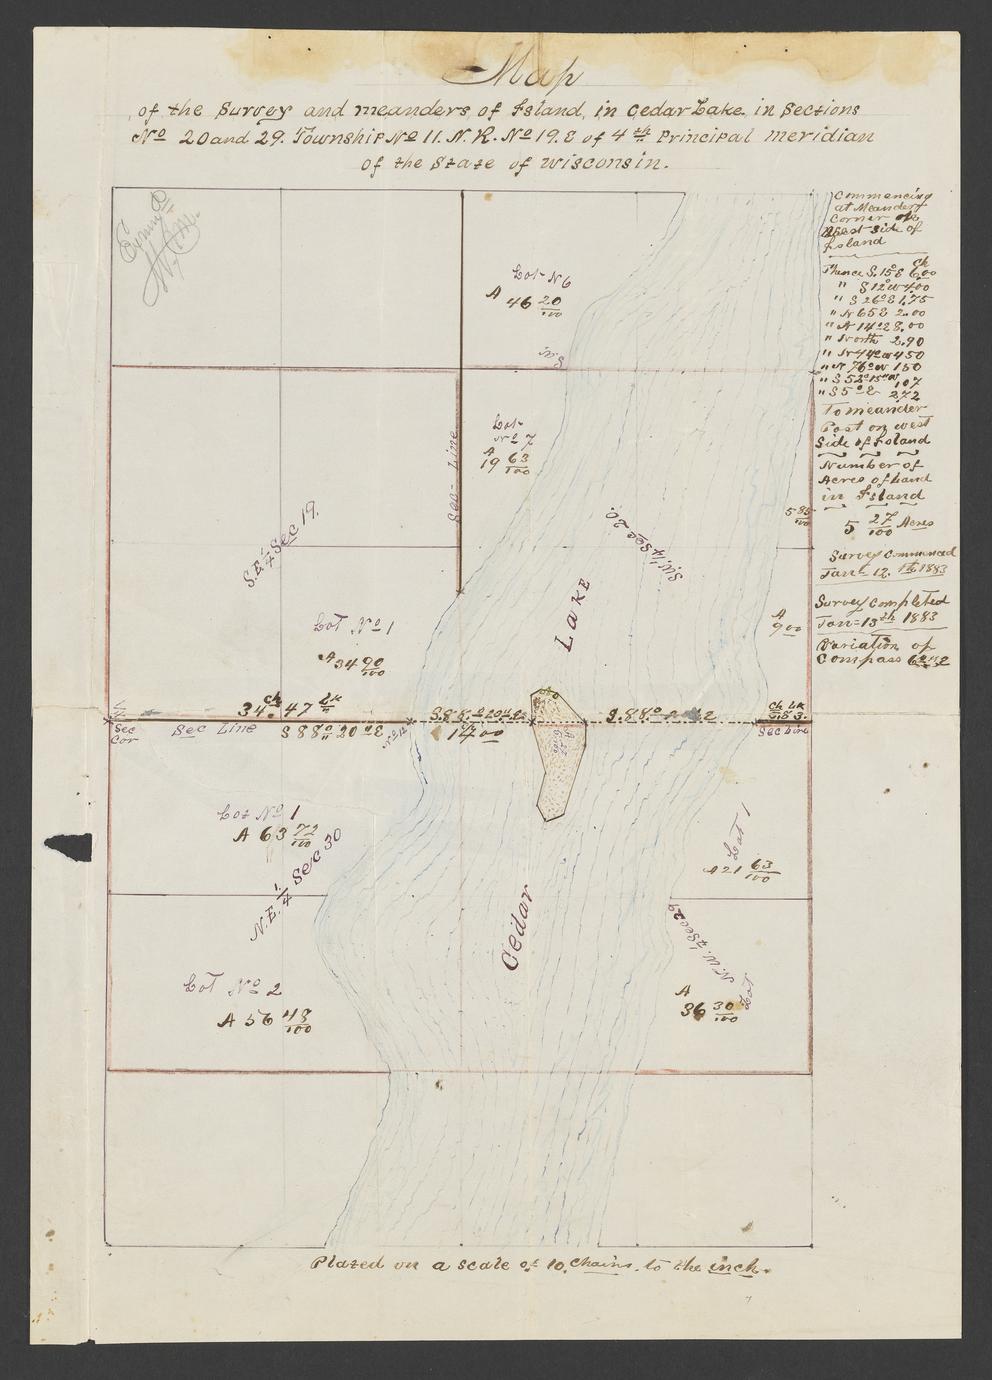 Map
of the Survey and meanders of Island, in Cedar Lake in Sections
No 20 and 29. Township No 11. N. R. No 19. E of 4th Principal meridian
of the State of Wisconsin.
Commencing
at Meander
Corner on
West side of
Island
ch
Thence S. 15° E 6.00
" S 12° W 4.00
" S 26° E 1.75
" N 65 E 2.00
" N 14° E 8.00
" North 2.90
" N 44° W 4 50
" N 76° W 1 50
" S 52° 15" W 1 07
" S 5° E 2 72
To meander
Post on west
Side of Island
Number of
Acres of Land
in Island
5 27/100 Acres
Survey Commenced
Jany 12. th 1883
Survey Completed
Jan= 13th 1883
Variation of
Compass
Lot No 6
A 46 20/100
Lot
No 7
A
19 63/100
Sec- Line
S.E. 1/4 Sec 19.
S.W. 1/4 Sec 20.
5 85/100
Lot No 1
A 34 90/100
LAKE
A
9 00
34 ch 47 Lk
S 88° 20" E
S 88°
Ch Lk
5.83.
Sec
Cor
Sec Line
S 88° 20" E
14 00
Sec Line
Lot No 1
A 63 72/100
N.E. 1/4 Sec 30
Lot 1
A 21 63/100
Cedar
N.W. 1/4 Sec 29
Lot No 2
A 56 48/100
Lot
A
36 30/100
Plated on a scale of 10 Chains. to the inch.